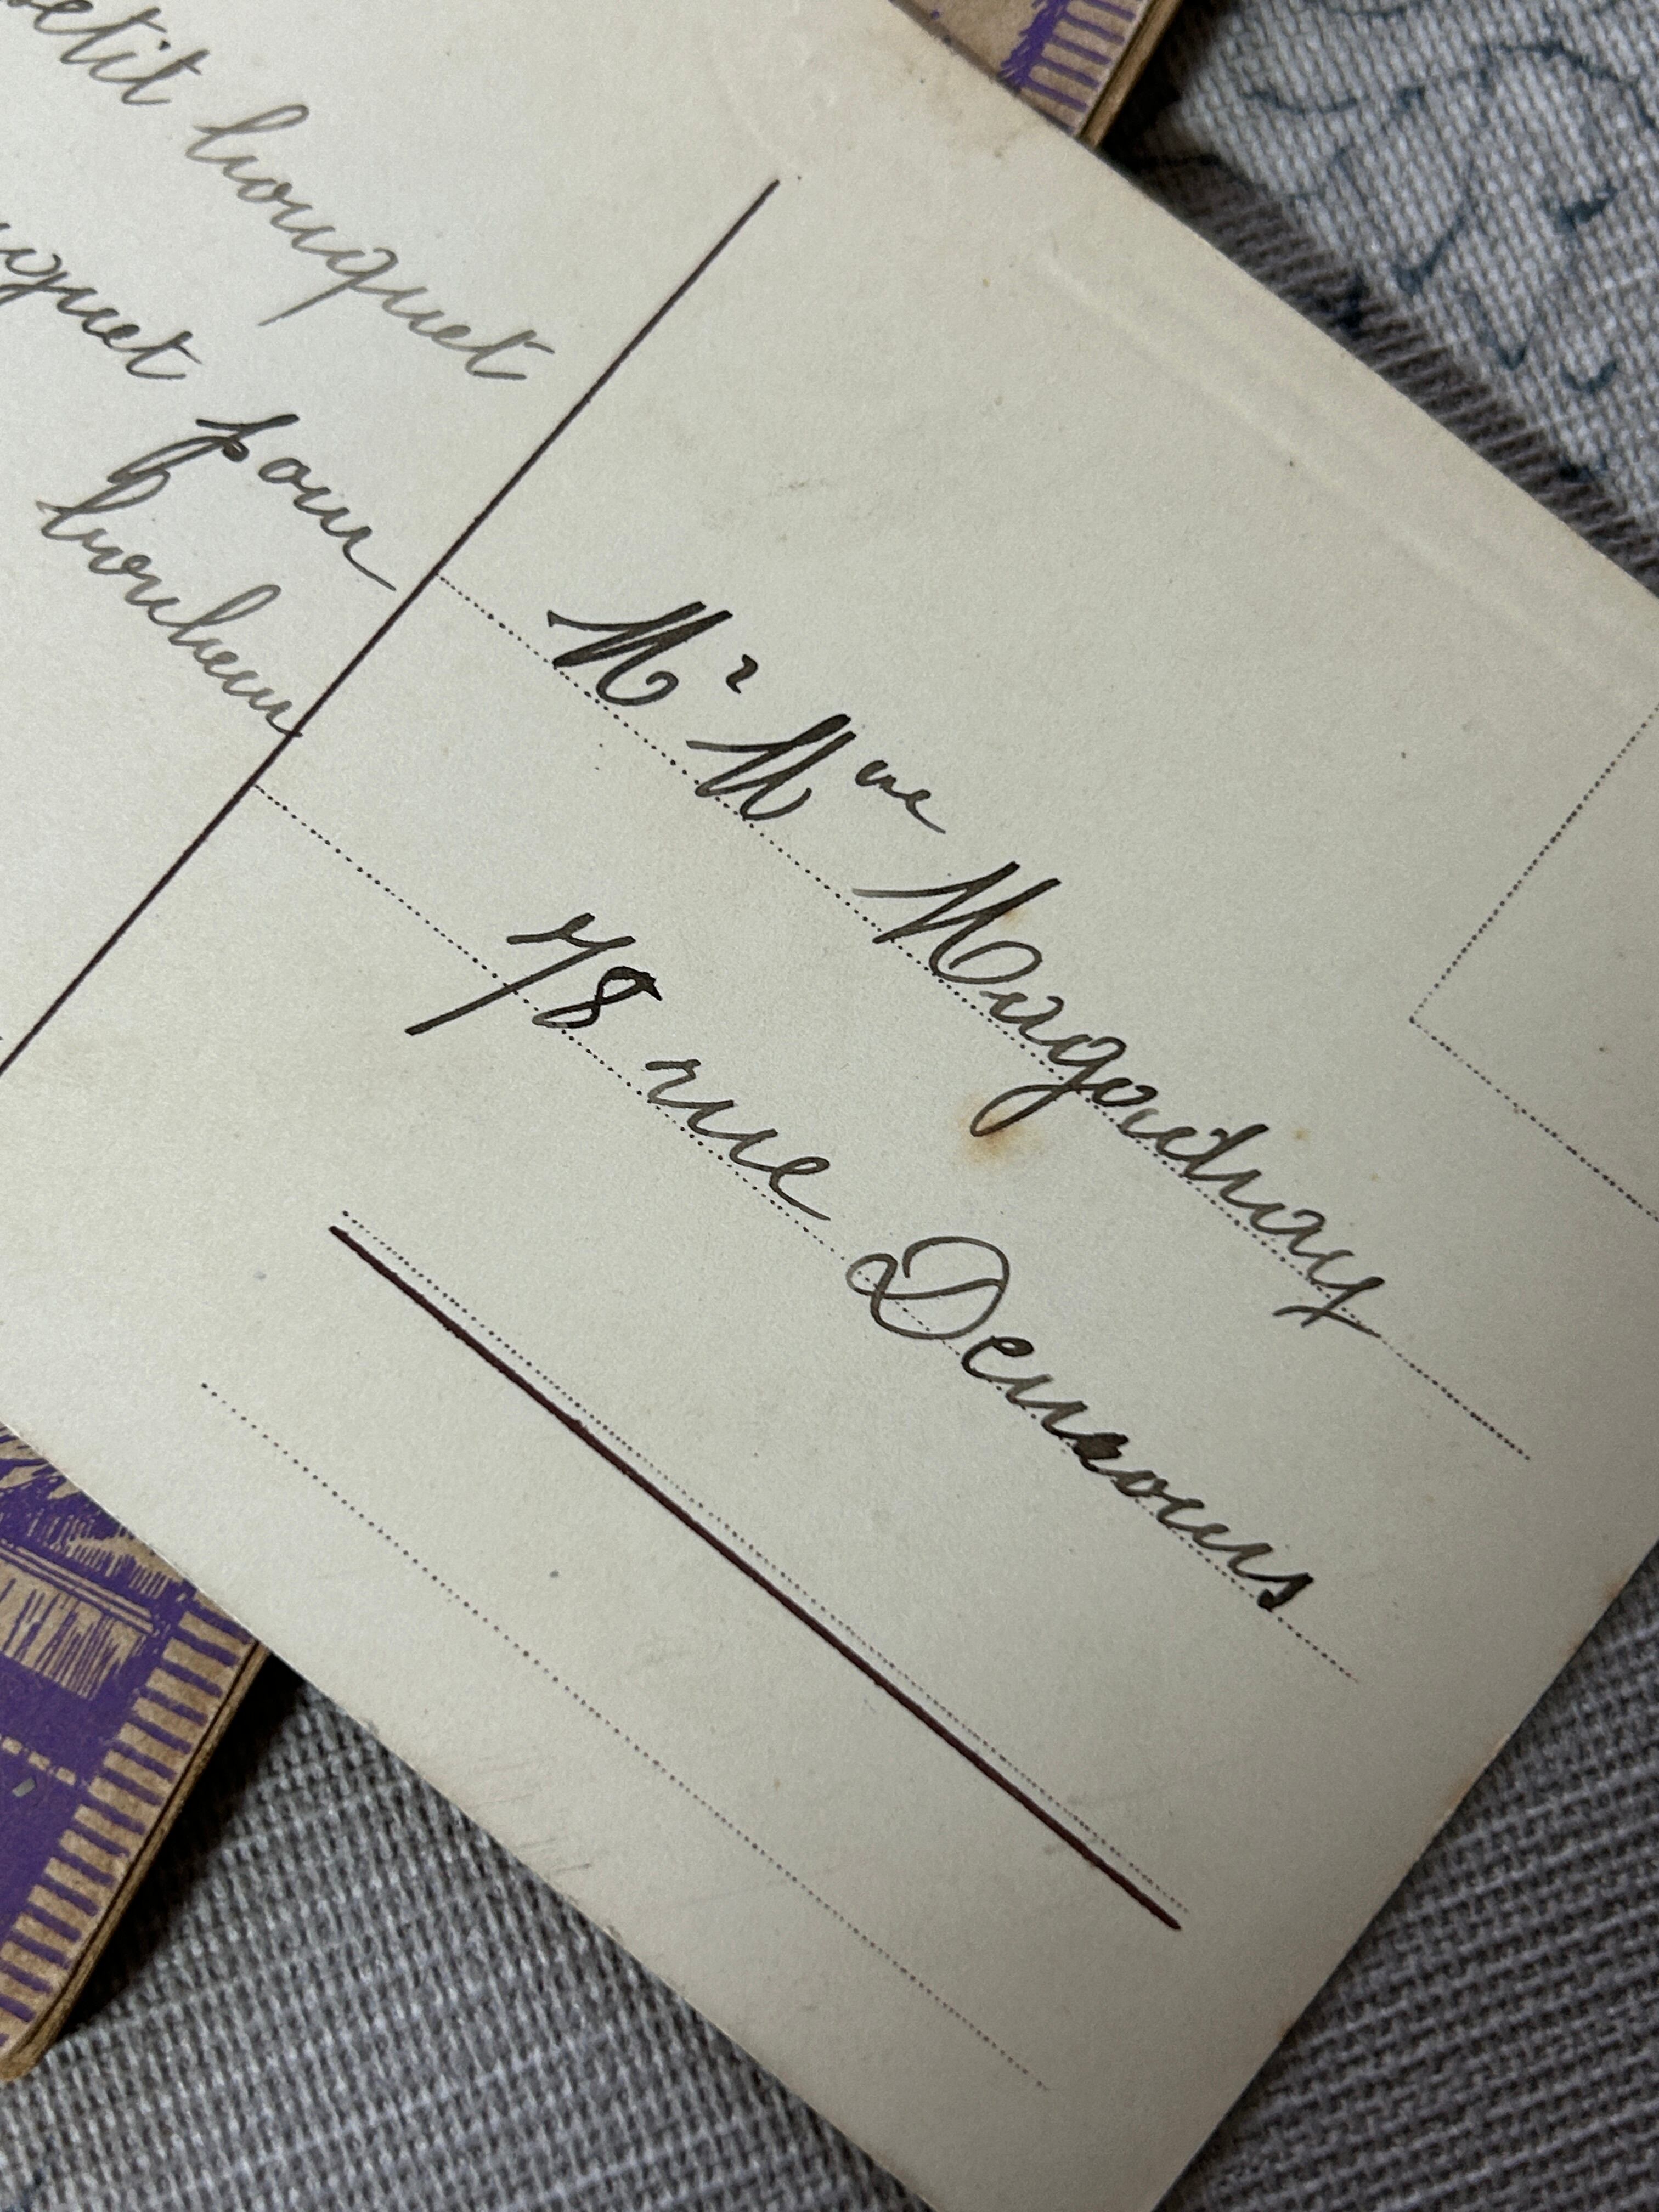 petit bouquet
uguet pour
bonheur
Mr Mme
78 rue Demours